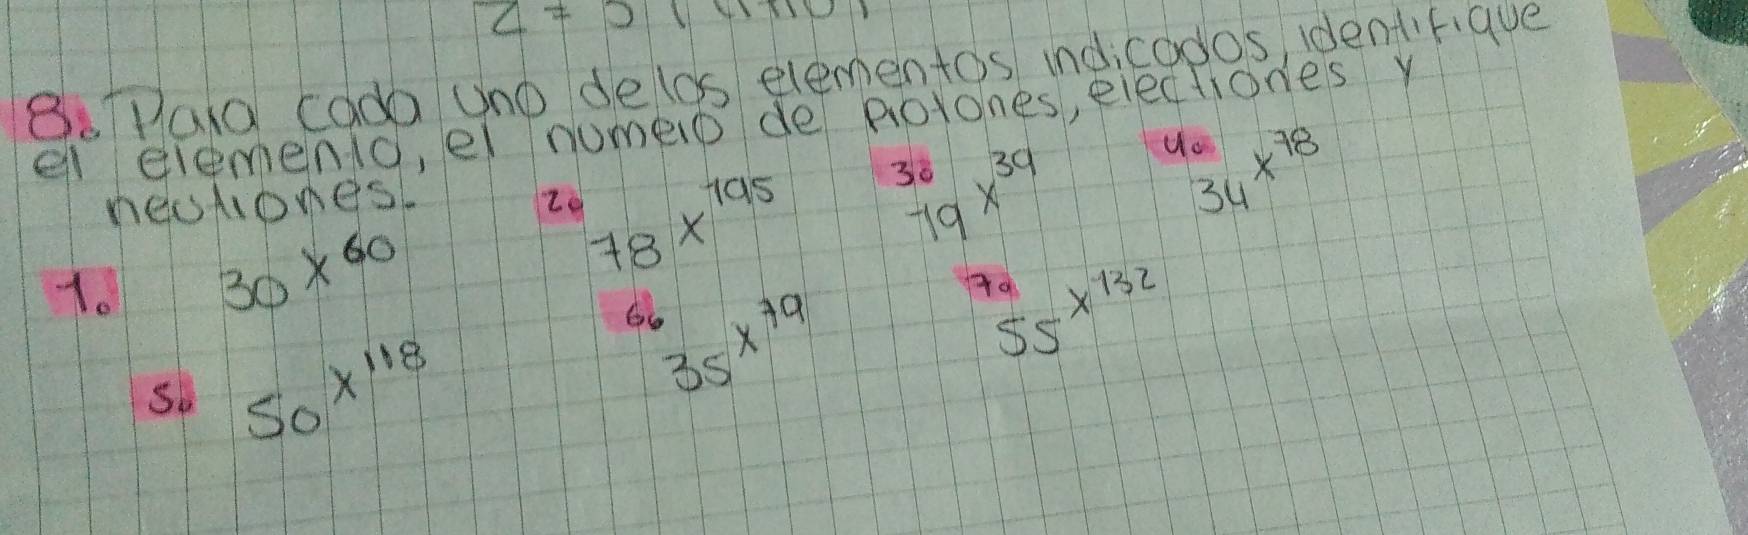 8. Para cada uno de los elementos indicados, identifique
el elemento, el numero de protones, electrones y
neutrones.
1. 30 x 60
2. 78 x 195
3. 19 x 39
4. 34 x 78
5. 50 x 118
6. 35 x 79
7. 55 x 132